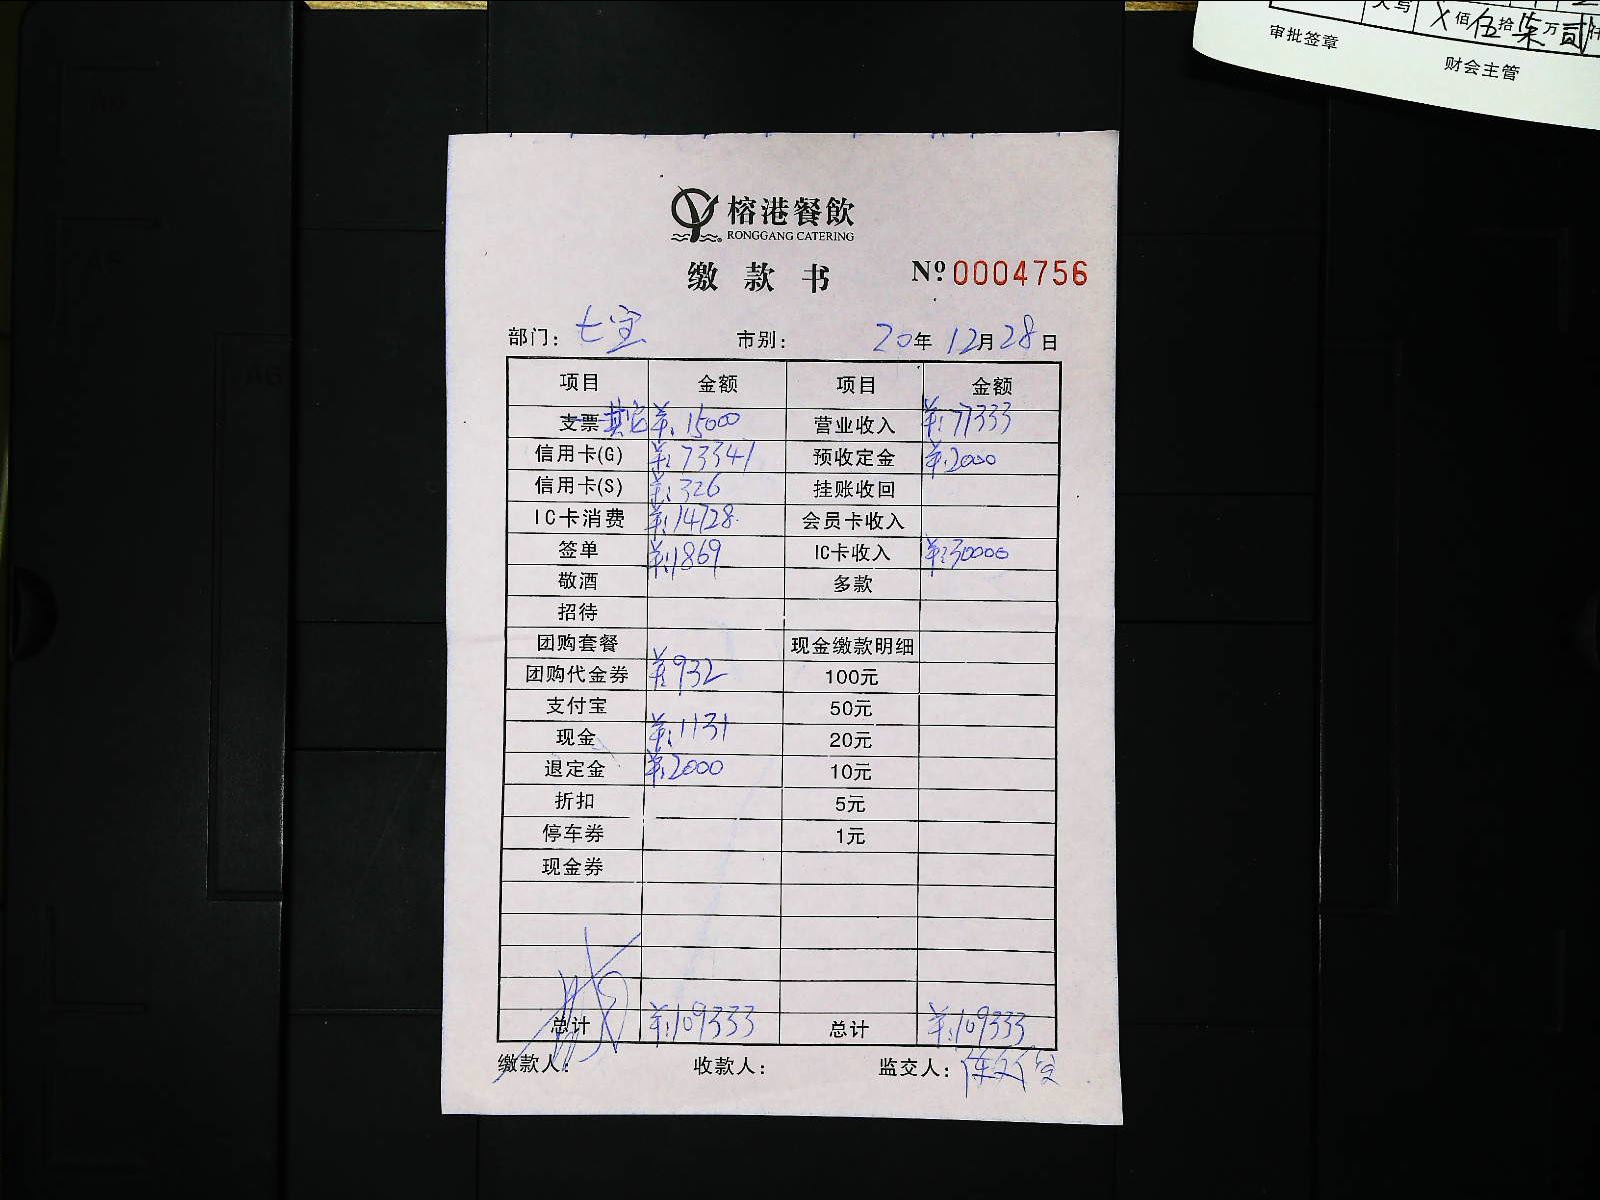 大写 X佰伍拾柒万贰仟
审批签章
财会主管
榕港餐飲
RONGGANG CATERING
缴款书 Nº 0004756
部门：七宝 市别： 20年12月28日
项目 金额 项目 金额
支票 其它 ¥:15000 营业收入 ¥:77333
信用卡(G) ¥:73341 预收定金 ¥:2000
信用卡(S) ¥:326 挂账收回
IC卡消费 ¥:14728. 会员卡收入
签单 ¥:1869 IC卡收入 ¥:30000
敬酒 多款
招待
团购套餐 现金缴款明细
团购代金券 ¥:932 100元
支付宝 50元
现金 ¥:1131 20元
退定金 ¥:2000 10元
折扣 5元
停车券 1元
现金券
总计 ¥:109333 总计 ¥:109333
缴款人： 收款人： 监交人：